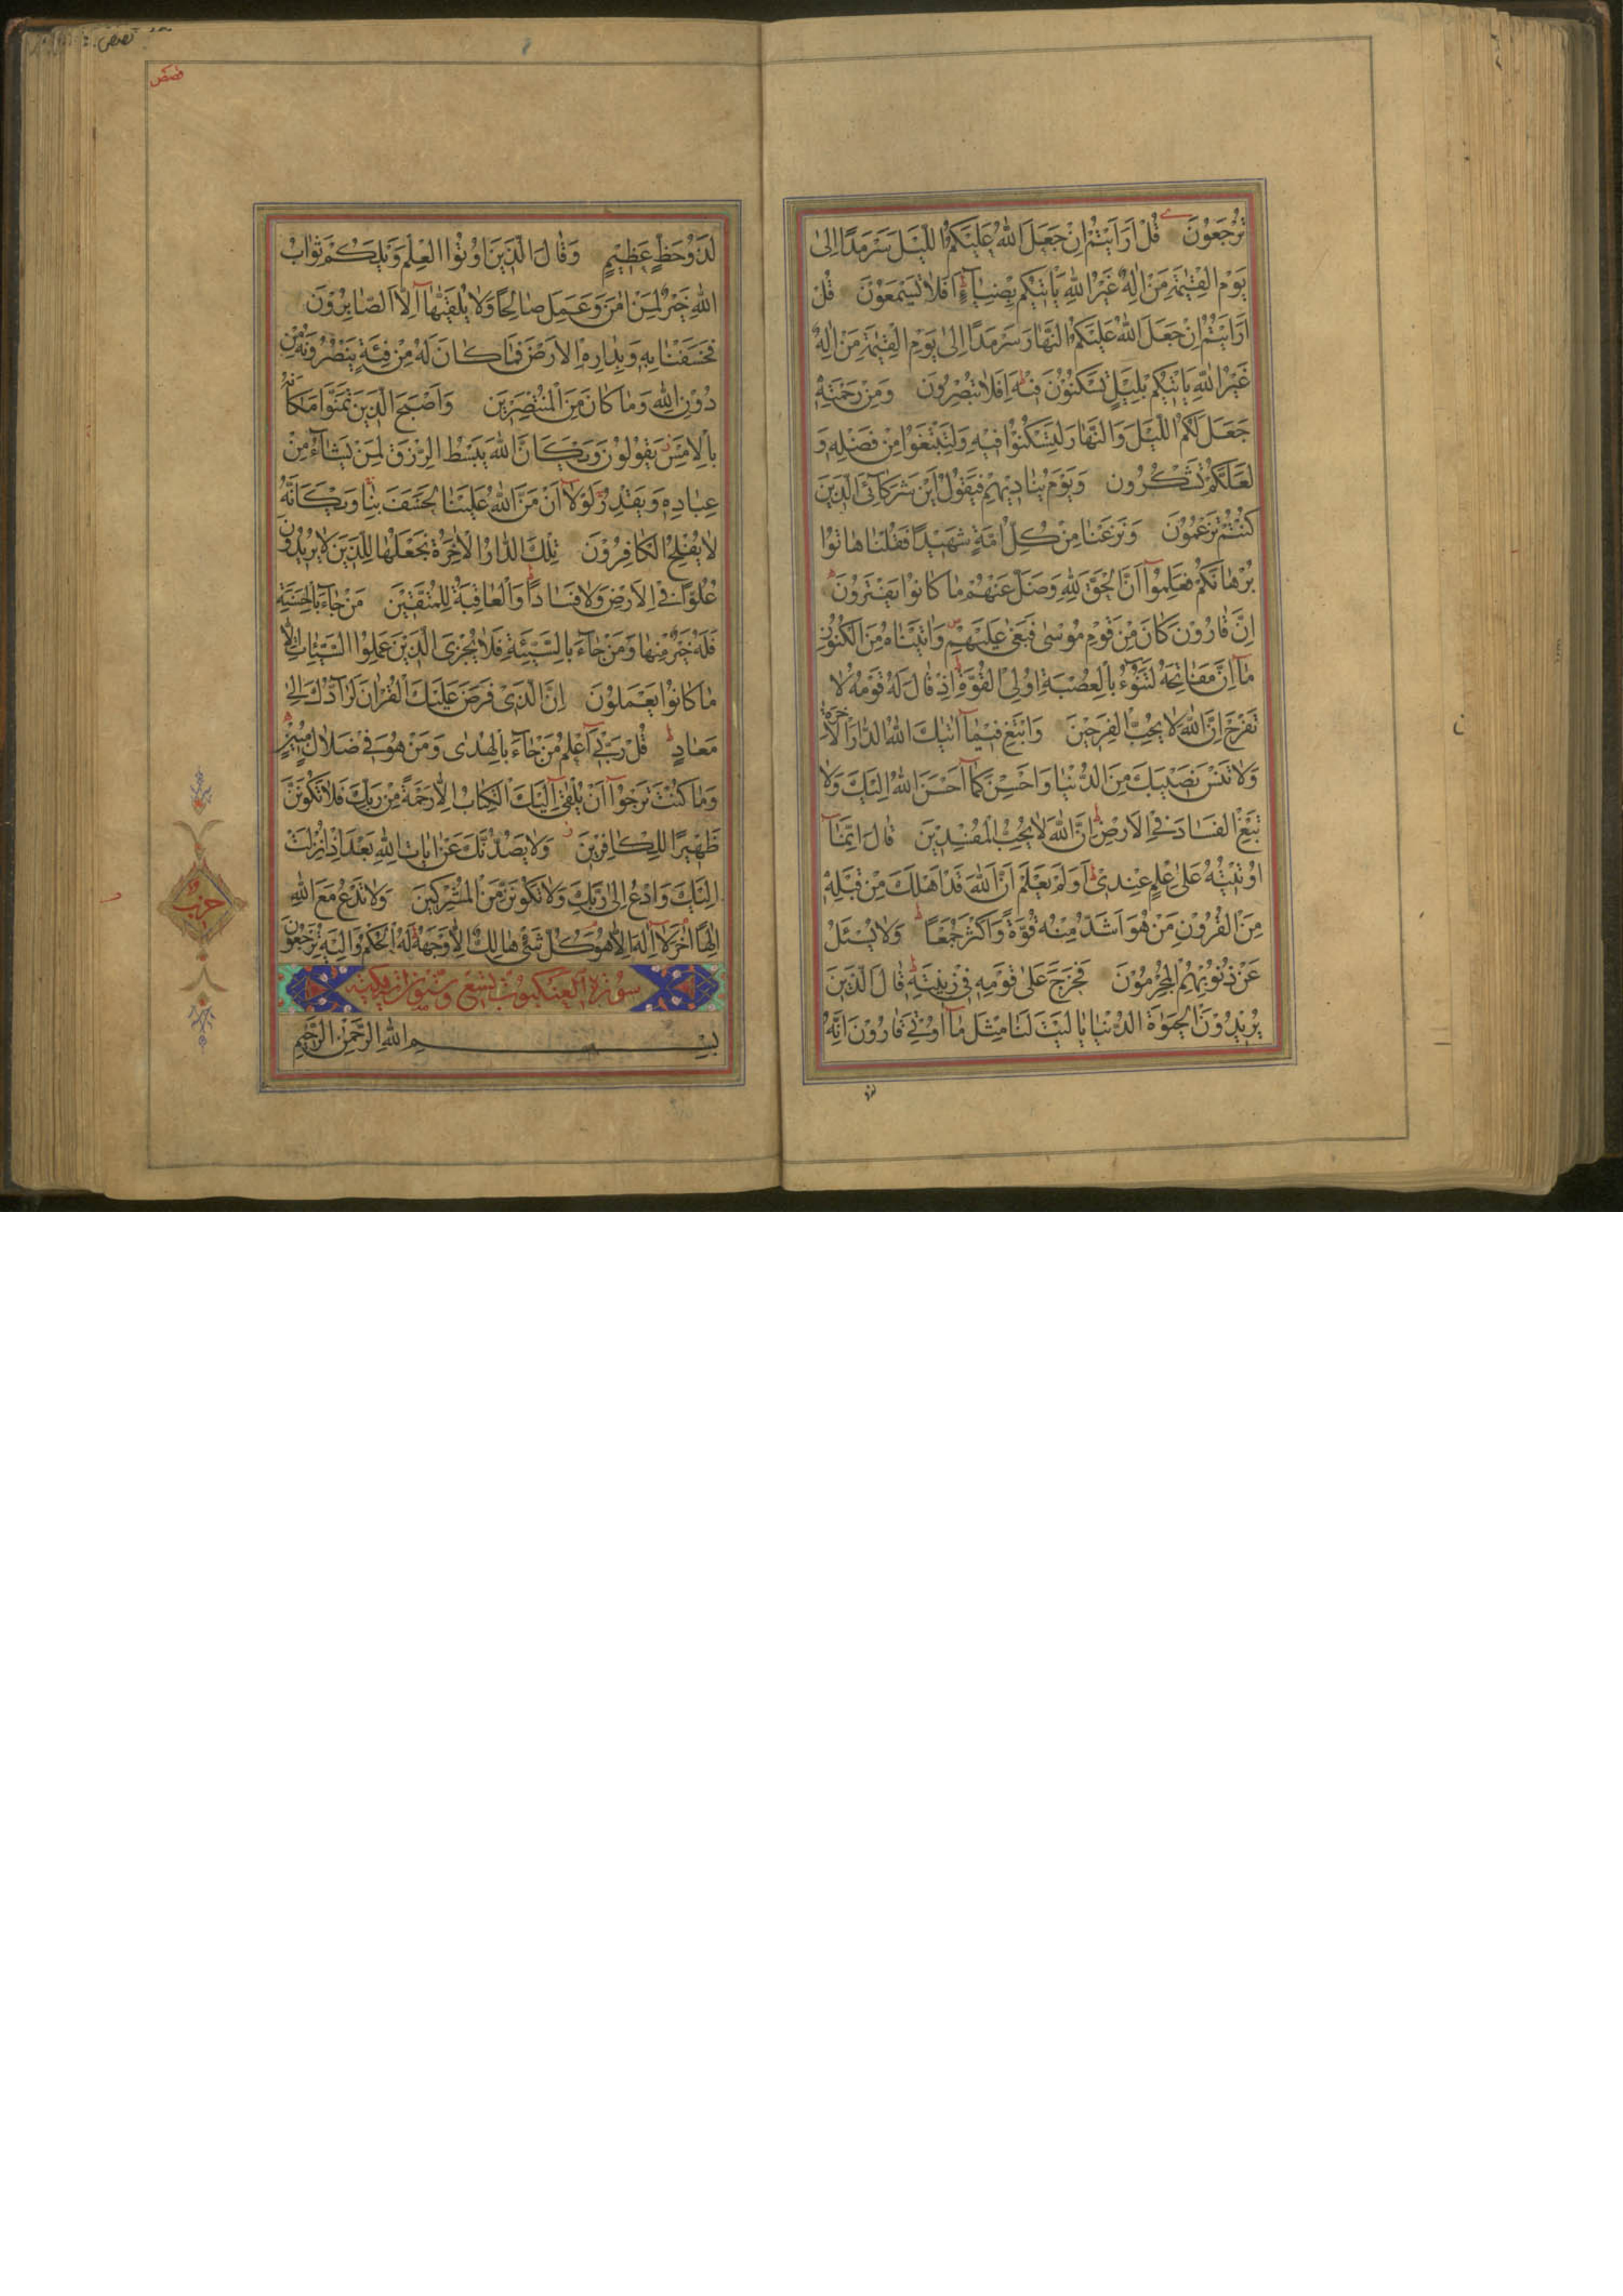 ترجعون قل ارايتم ان جعل الله عليكم الليل سرمدا الى
يوم القيمة من اله غير الله ياتيكم بضياء افلا تسمعون قل
ارايتم ان جعل الله عليكم النهار سرمدا الى يوم القيمة من اله
غير الله ياتيكم بليل تسكنون فيه افلا تبصرون ومن رحمته
جعل لكم الليل والنهار لتسكنوا فيه ولتبتغوا من فضله و
لعلكم تشكرون ويوم يناديهم فيقول اين شركائى الذين
كنتم تزعمون ونزعنا من كل امة شهيدا فقلنا هاتوا
برهانكم فعلموا ان الحق لله وضل عنهم ما كانوا يفترون
ان قارون كان من قوم موسى فبغى عليهم واتيناه من الكنوز
ما ان مفاتحه لتنوء بالعصبة اولى القوة اذ قال له قومه لا
تفرح ان الله لا يحب الفرحين وابتغ فيما اتيك الله الدار الاخرة
ولا تنس نصيبك من الدنيا واحسن كما احسن الله اليك ولا
تبغ الفساد فى الارض ان الله لا يحب المفسدين قال انما
اوتيته على علم عندى اولم يعلم ان الله قد اهلك من قبله
من القرون من هو اشد منه قوة واكثر جمعا ولا يسئل
عن ذنوبهم المجرمون فخرج على قومه فى زينته قال الذين
يريدون الحيوة الدنيا يا ليت لنا مثل ما اوتى قارون انه
قصص
قصص
لذو حظ عظيم وقال الذين اوتوا العلم ويلكم ثواب
الله خير لمن امن وعمل صالحا ولا يلقيها الا الصابرون
فخسفنا به وبداره الارض فما كان له من فئة ينصرونه من
دون الله وما كان من المنتصرين واصبح الذين تمنوا مكانه
بالامس يقولون ويكان الله يبسط الرزق لمن يشاء من
عباده ويقدر لولا ان من الله علينا لخسف بنا ويكانه
لا يفلح الكافرون تلك الدار الاخرة نجعلها للذين لا يريدون
علوا فى الارض ولا فسادا والعاقبة للمتقين من جاء بالحسنة
فله خير منها ومن جاء بالسيئة فلا يجزى الذين عملوا السيئات الا
ما كانوا يعملون ان الذى فرض عليك القران لرادك الى
معاد قل ربى اعلم من جاء بالهدى ومن هو فى ضلال مبين
وما كنت ترجوا ان يلقى اليك الكتاب الا رحمة من ربك فلا تكونن
ظهيرا للكافرين ولا يصدنك عن ايات الله بعد اذ انزلت
اليك وادع الى ربك ولا تكونن من المشركين ولا تدع مع الله
الها اخر لا اله الا هو كل شئ هالك الا وجهه له الحكم واليه ترجعون
حزب
سورة العنكبوت تسع وستون اية مكية
بسم الله الرحمن الرحيم